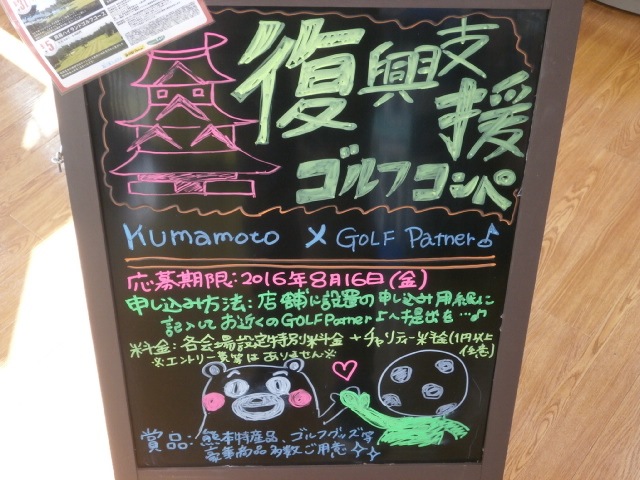 復興支援
ゴルフコンペ
Kumamoto × GOLF Patner♪
応募期限:2016年8月16日(金)
申し込み方法:店舗に設置の申し込み用紙に
記入してお近くのGOLF Patner♪へ提出を…♪
料金:各会場設定特別料金+チャリティー料金(1円以上
任意)
※エントリー費等はありません※
賞品:熊本特産品、ゴルフグッズ等
豪華商品多数ご用意